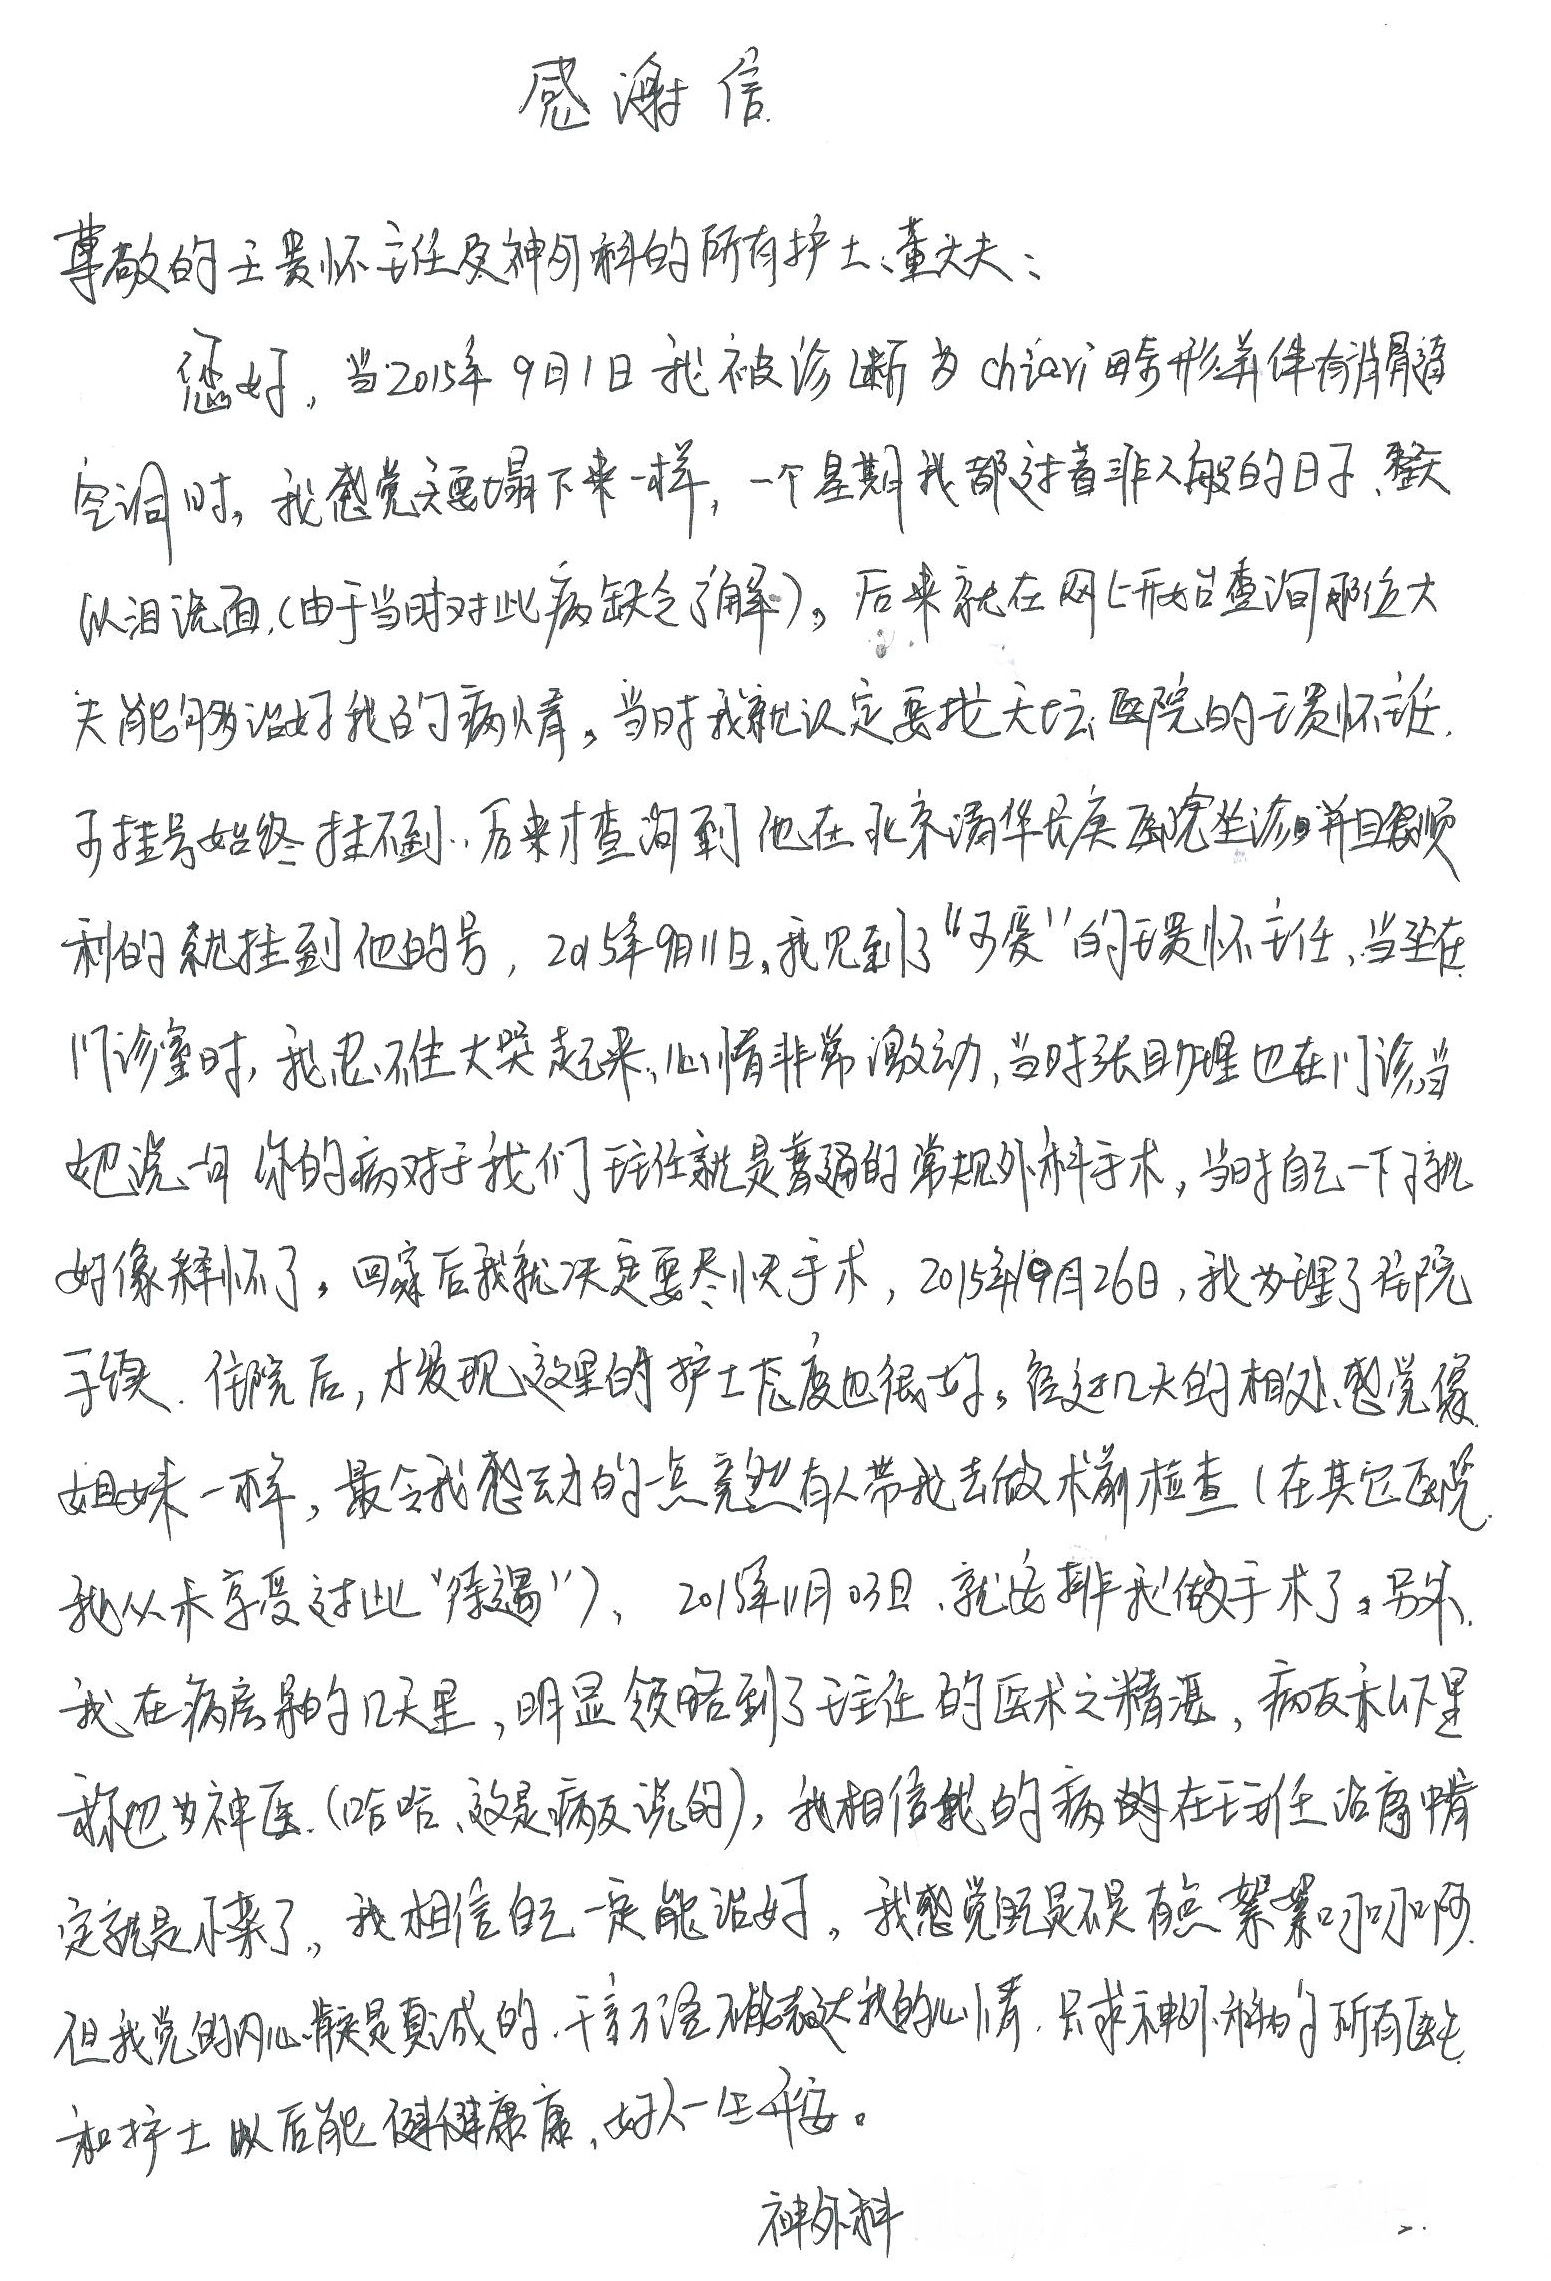 感谢信
尊敬的王贵怀主任及神外科的所有护士、董大夫:
您好,当2015年9月1日我被诊断为chiari畸形并伴有脊髓
空洞时,我感觉天要塌下来一样,一个星期我都过着非人般的日子、整天
以泪洗面,(由于当时对此病缺乏了解)。后来就在网上开始查询那位大
夫能够治好我的病情。当时我就认定要找天坛医院的王贵怀主任.
可挂号始终挂不到..后来才查询到他在北京清华长庚医院坐诊.并且很顺
利的就挂到他的号,2015年9月11日,我见到了“可爱”的王贵怀主任、当坐在
门诊室时,我忍不住大哭起来、心情非常激动,当时张助理也在门诊.当
她说一句你的病对于我们王主任就是普通的常规外科手术,当时自己一下子就
好像释怀了。回家后我就决定要尽快手术,2015年9月26日,我办理了住院
手续.住院后,才发现这里的护士态度也很好。经过几天的相处、感觉像
姐妹一样,最令我感动的一点竟然有人带我去做术前检查(在其它医院
我从未享受过此“待遇”)、2015年11月03日、就安排我做手术了。另外、
我在病房的几天里,明显领略到了王主任的医术之精湛,病友私下里
称他为神医.(哈哈、这是病友说的),我相信我的病在王主任治疗中肯
定就是小菜了,我相信自己一定能治好。我感觉是不是有点絮絮叨叨啊.
但我觉的内心确实是真诚的.千言万语不能表达我的心情.只求神外科的所有医生
和护士以后能健健康康,好人一生平安。
神外科